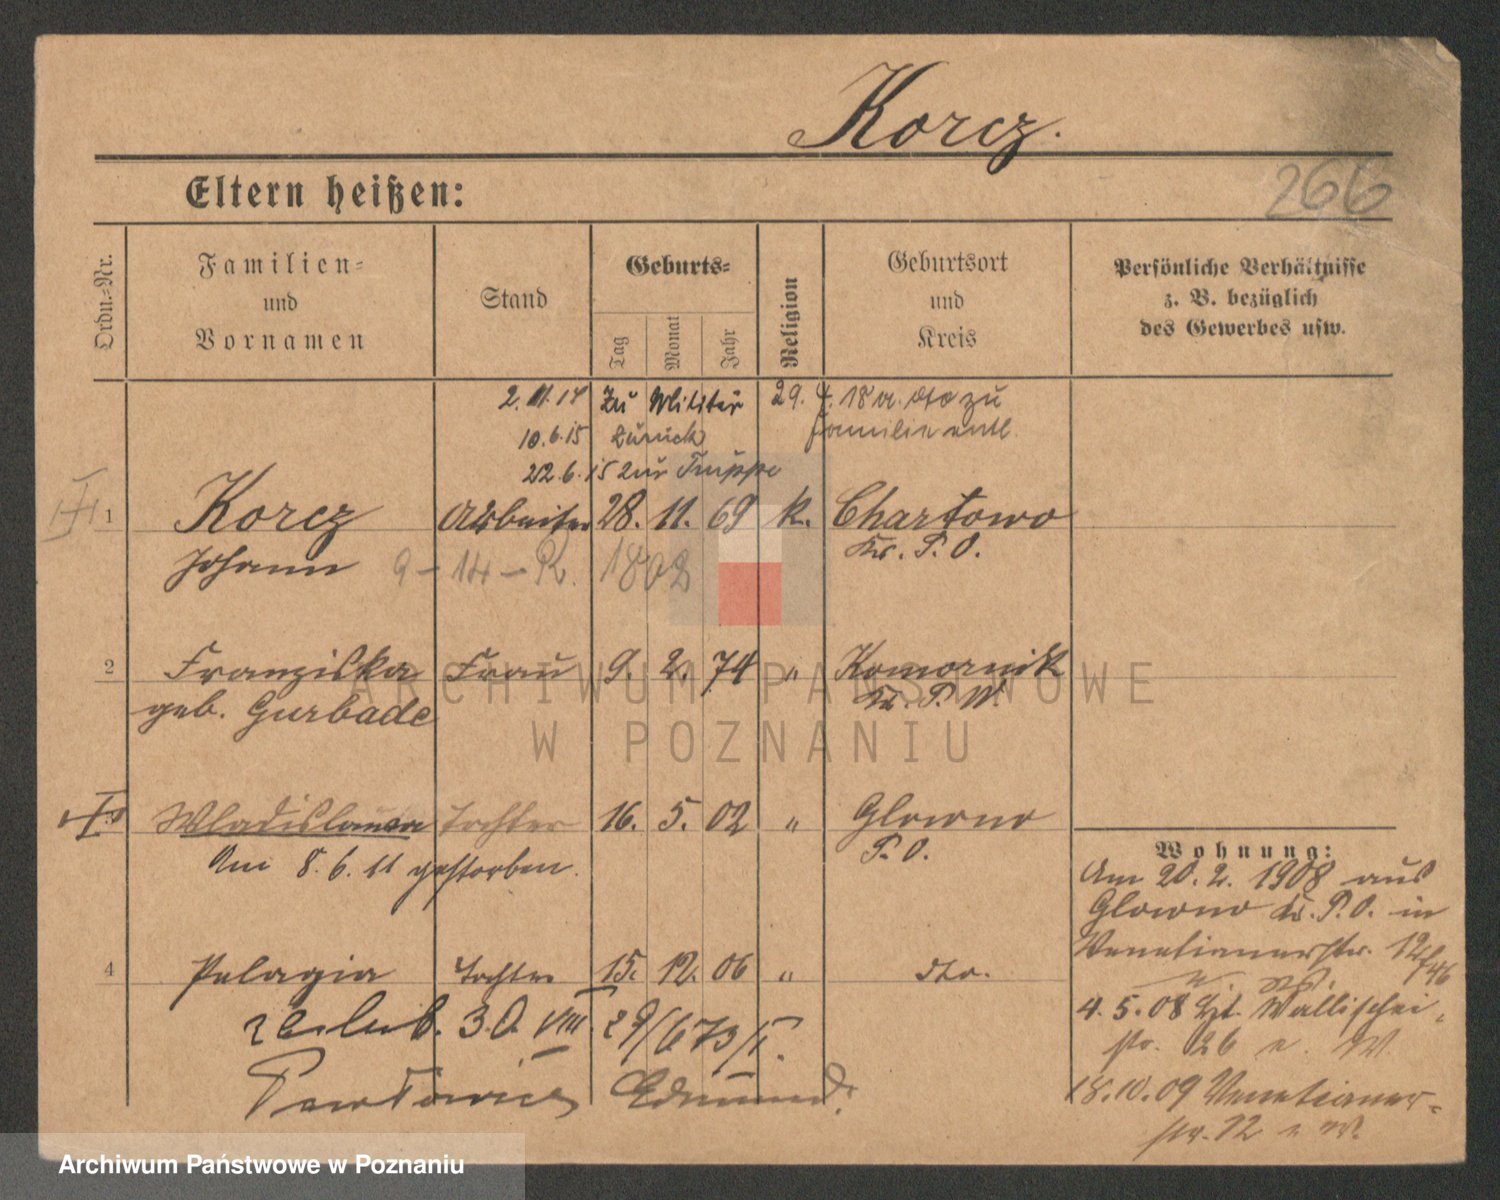 Korcz.
266
Eltern heißen:
Ordn.-Nr.
Familien-
und
Vornamen
Stand
Geburts-
Tag
Monat
Jahr
Religion
Geburtsort
und
Kreis
Persönliche Verhältnisse
z. B. bezüglich
des Gewerbes usw.
2. 11. 14 Zu Militär 29. 4. 18 a. dto zu
10.6.15 zurück Familie entl.
22.6.15 zur Truppe
1 Korcz Arbeiter 28. 11. 69 k. Chartowo
Johann Kr. P. O.
9 - 14 - R. 1808
2 Franziska Frau 9. 2. 74 " Komornik
geb. Gurbade Kr. P. W.
3 Wladislawa Tochter 16. 5. 02 " Glowno
Am 8. 6. 11 gestorben. P. O.
4 Pelagia Tochter 15. 12. 06 " dto.
30. VIII. 29/673/I.
Pawłowicz Edmund.
Wohnung:
Am 20. 2. 1908 aus
Glowno Kr. P. O. in
Venetianerstr. 12
4. 5. 08 Wallischei-
str. 26 W.
18. 10. 09 Venetianer-
str. 12
ARCHIWUM PAŃSTWOWE
W POZNANIU
Archiwum Państwowe w Poznaniu